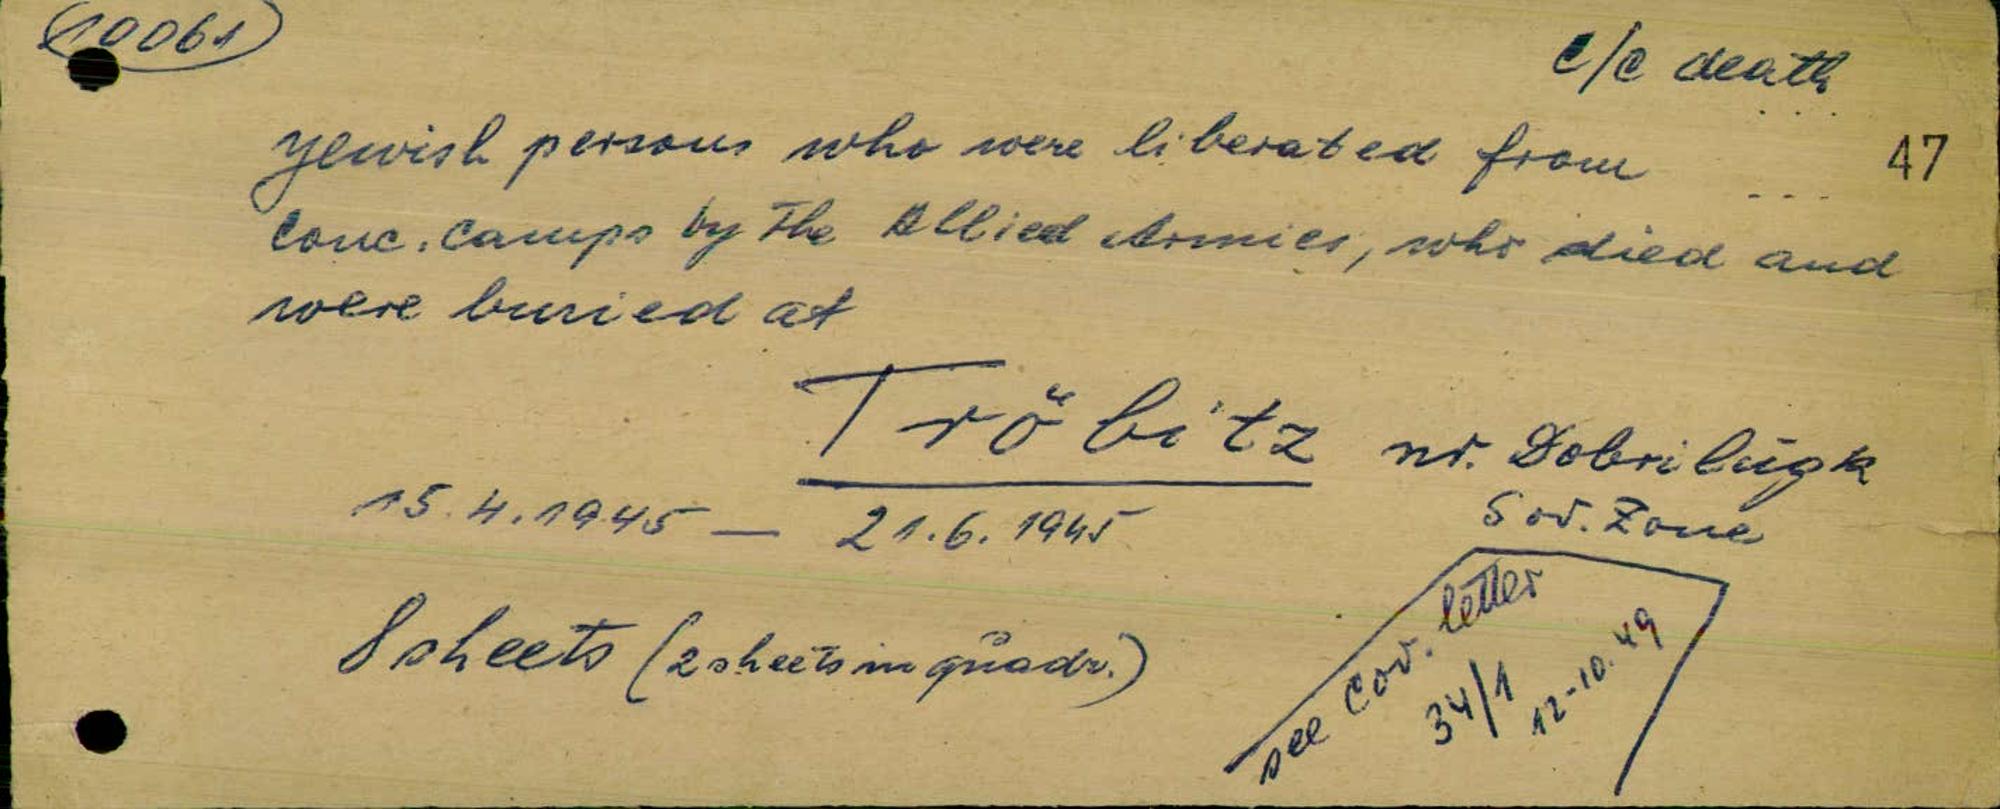 10061
c/c death
Jewish persons who were liberated from
47
Conc. Camps by The Allied Armies, who died and
were buried at
Tröbitz nr. Dobrilugk
Sov. Zone
15.4.1945 — 21.6.1945
8 sheets (2 sheets in quadr.)
see Cov. letter
34/1
12-10.49